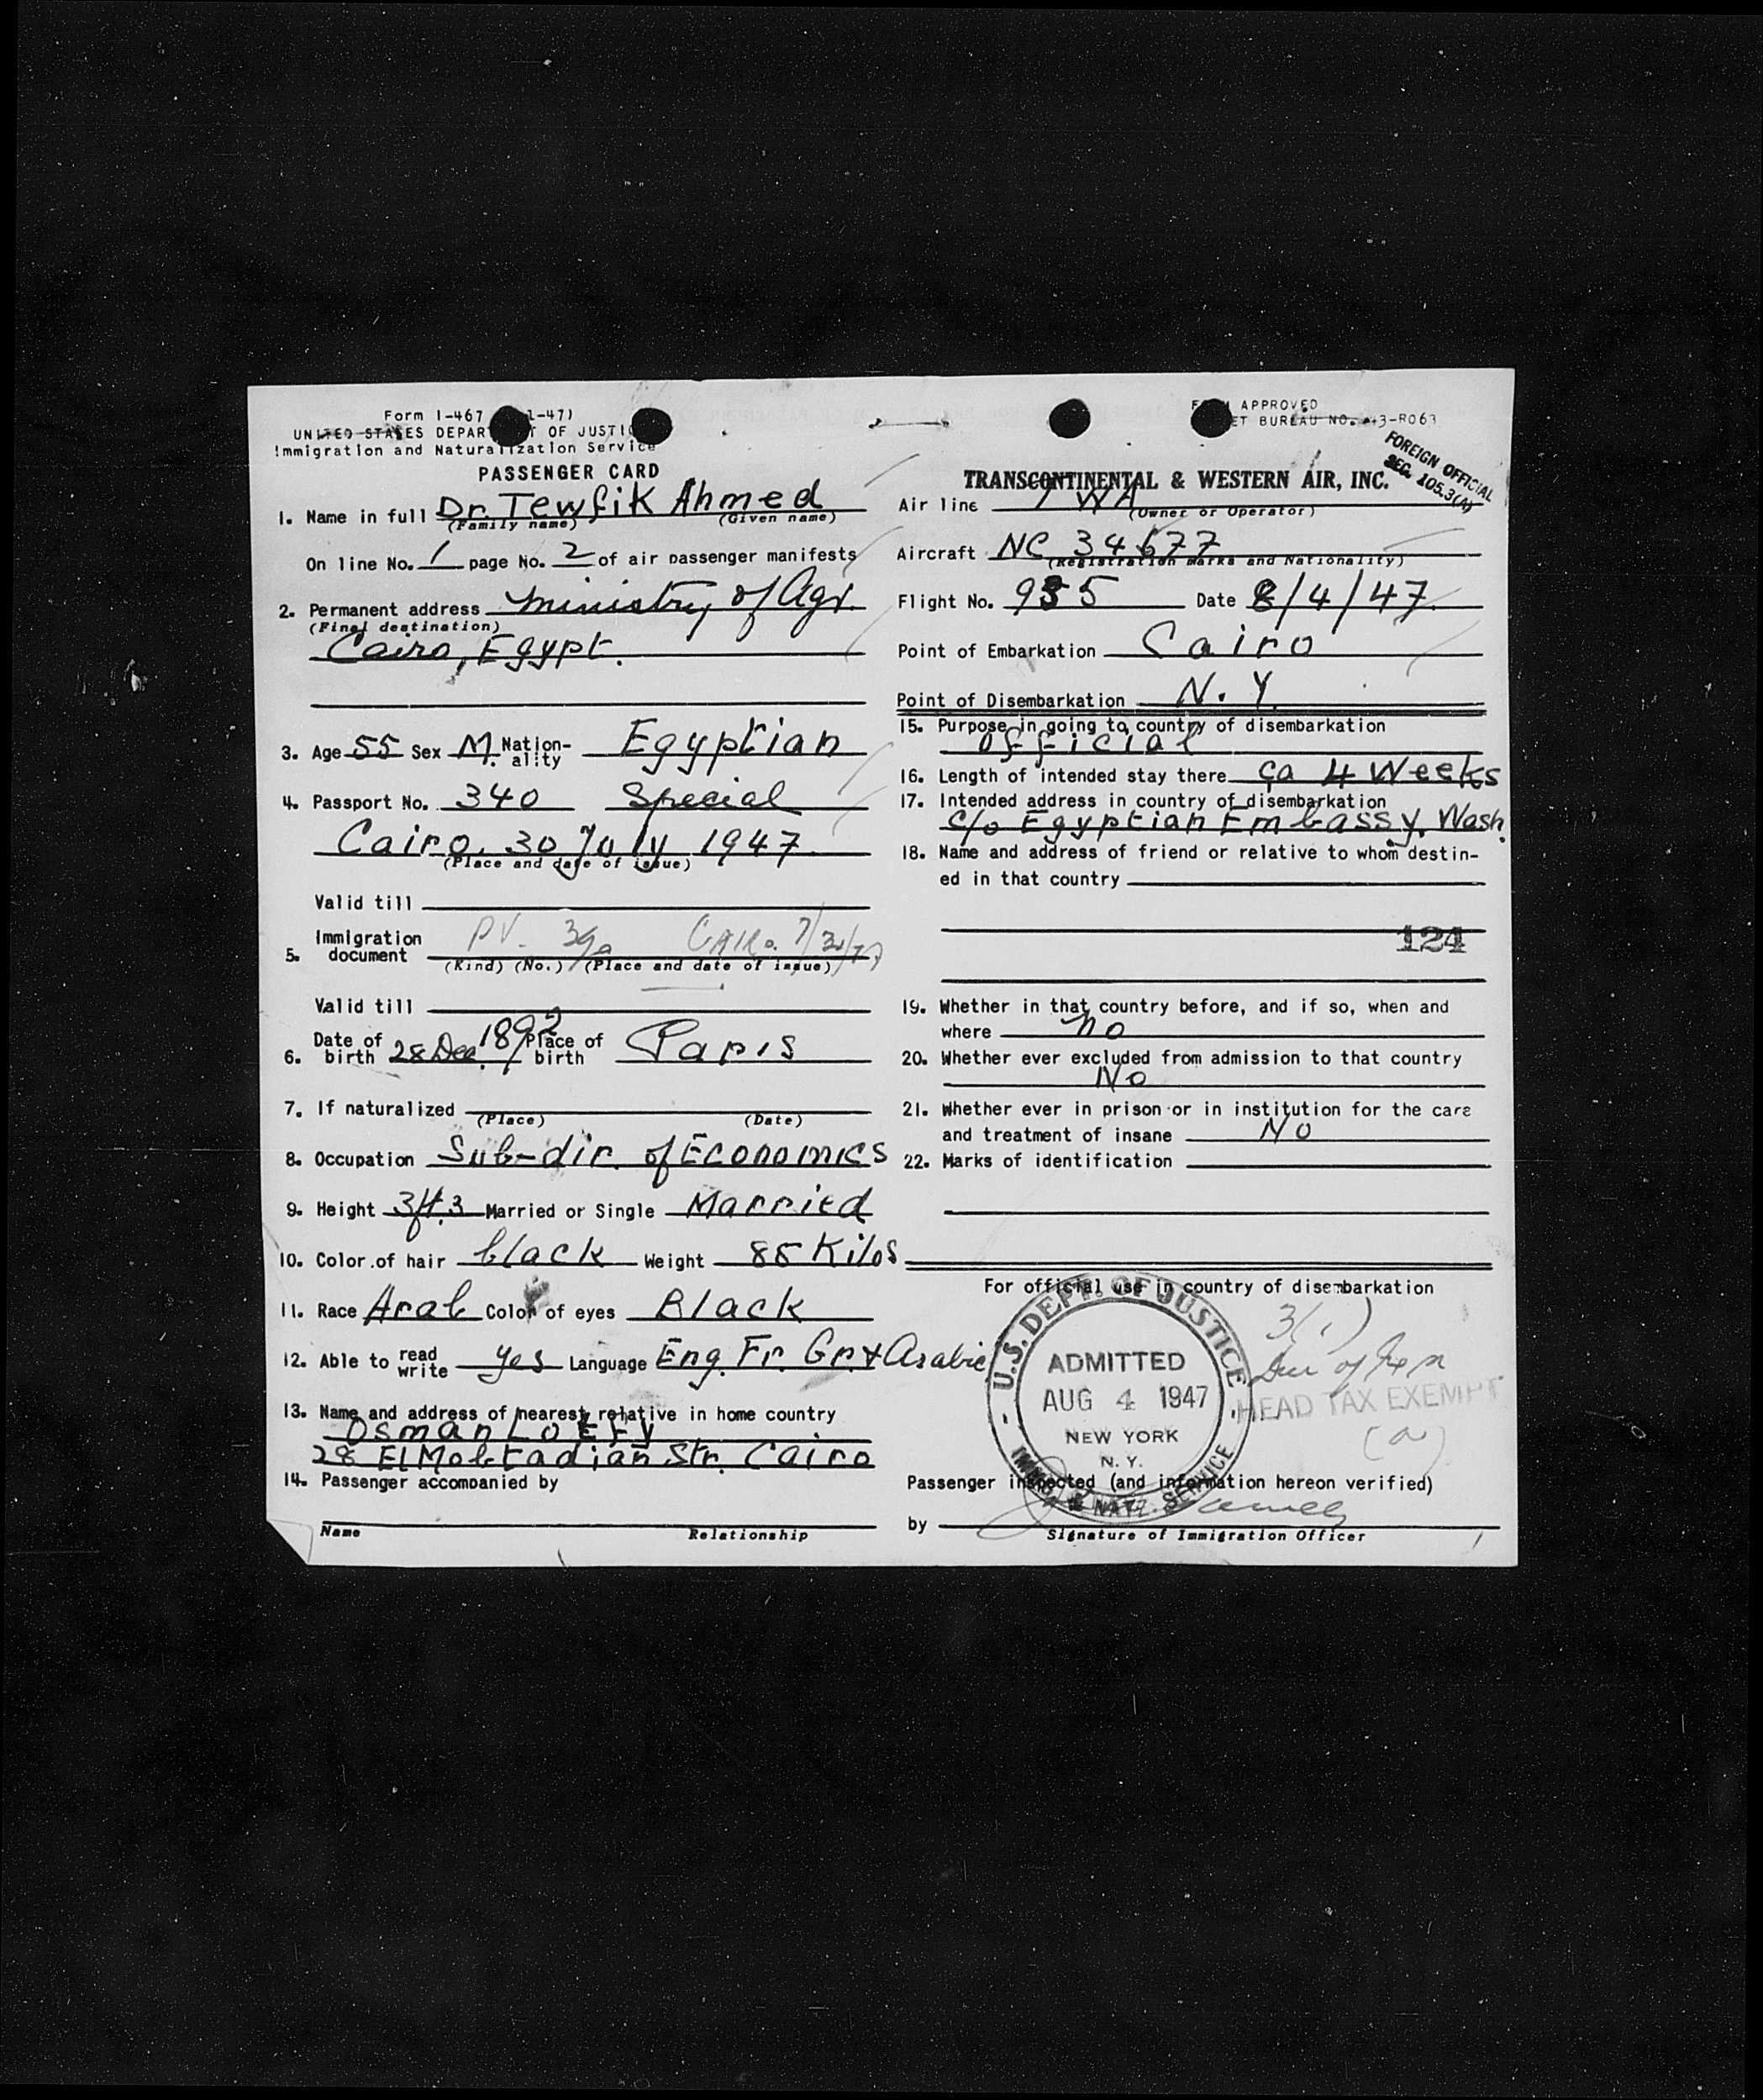 Form I-467 1-47)
UNITED STATES DEPAR T OF JUSTIC
Immigration and Naturalization Service
PASSENGER CARD
1. Name in full Dr. Tewfik Ahmed
(Family name) (Given name)
On line No. 1 page No. 2 of air passenger manifests
2. Permanent address Ministry of Agr.
(Final destination)
Cairo, Egypt.
3. Age 55 Sex M. Nation-ality Egyptian
4. Passport No. 340 Special
Cairo. 30 July 1947.
(Place and date of issue)
Valid till
5. Immigration document PV. CAIRO.
(Kind) (No.) (Place and date of issue)
Valid till
6. Date of birth 28 Dec. 1892 Place of birth Paris
7. If naturalized
(Place) (Date)
8. Occupation Sub-dir. of Economics
9. Height 3f.3 Married or Single Married
10. Color of hair black Weight 85 Kilos
11. Race Arab Color of eyes Black
12. Able to read write yes Language Eng. Fr. Gr. & Arabic
13. Name and address of nearest relative in home country
Osman Lotfy
28 El Mobtadian Str. Cairo
14. Passenger accompanied by
Name Relationship
APPROVED
ET BUREAU NO. 43-R063
FOREIGN OFFICIAL
SEC. 105.3(A)
TRANSCONTINENTAL & WESTERN AIR, INC.
Air line TWA
(Owner or Operator)
Aircraft NC 34677
(Registration marks and Nationality)
Flight No. 935 Date 8/4/47.
Point of Embarkation Cairo
Point of Disembarkation N.Y.
15. Purpose in going to country of disembarkation
Official
16. Length of intended stay there ca 4 Weeks
17. Intended address in country of disembarkation
c/o Egyptian Embassy. Wash.
18. Name and address of friend or relative to whom destin-
ed in that country
124
19. Whether in that country before, and if so, when and
where no
20. Whether ever excluded from admission to that country
No
21. Whether ever in prison or in institution for the care
and treatment of insane No
22. Marks of identification
For official use in country of disembarkation
3(1)
U.S. DEPT. OF JUSTICE
ADMITTED
AUG 4 1947
NEW YORK
N. Y.
IMMI. & NATZ. SERVICE
HEAD TAX EXEMPT
(a)
Passenger inspected (and information hereon verified)
by
Signature of Immigration Officer